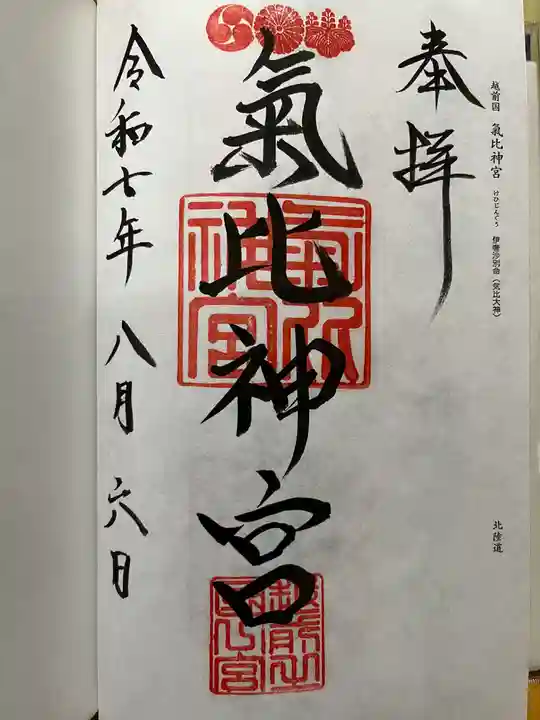 越前国 氣比神宮 けひじんぐう 伊奢沙別命（気比大神）
北陸道
奉拝
氣比神宮
氣比神宮
令和七年八月六日